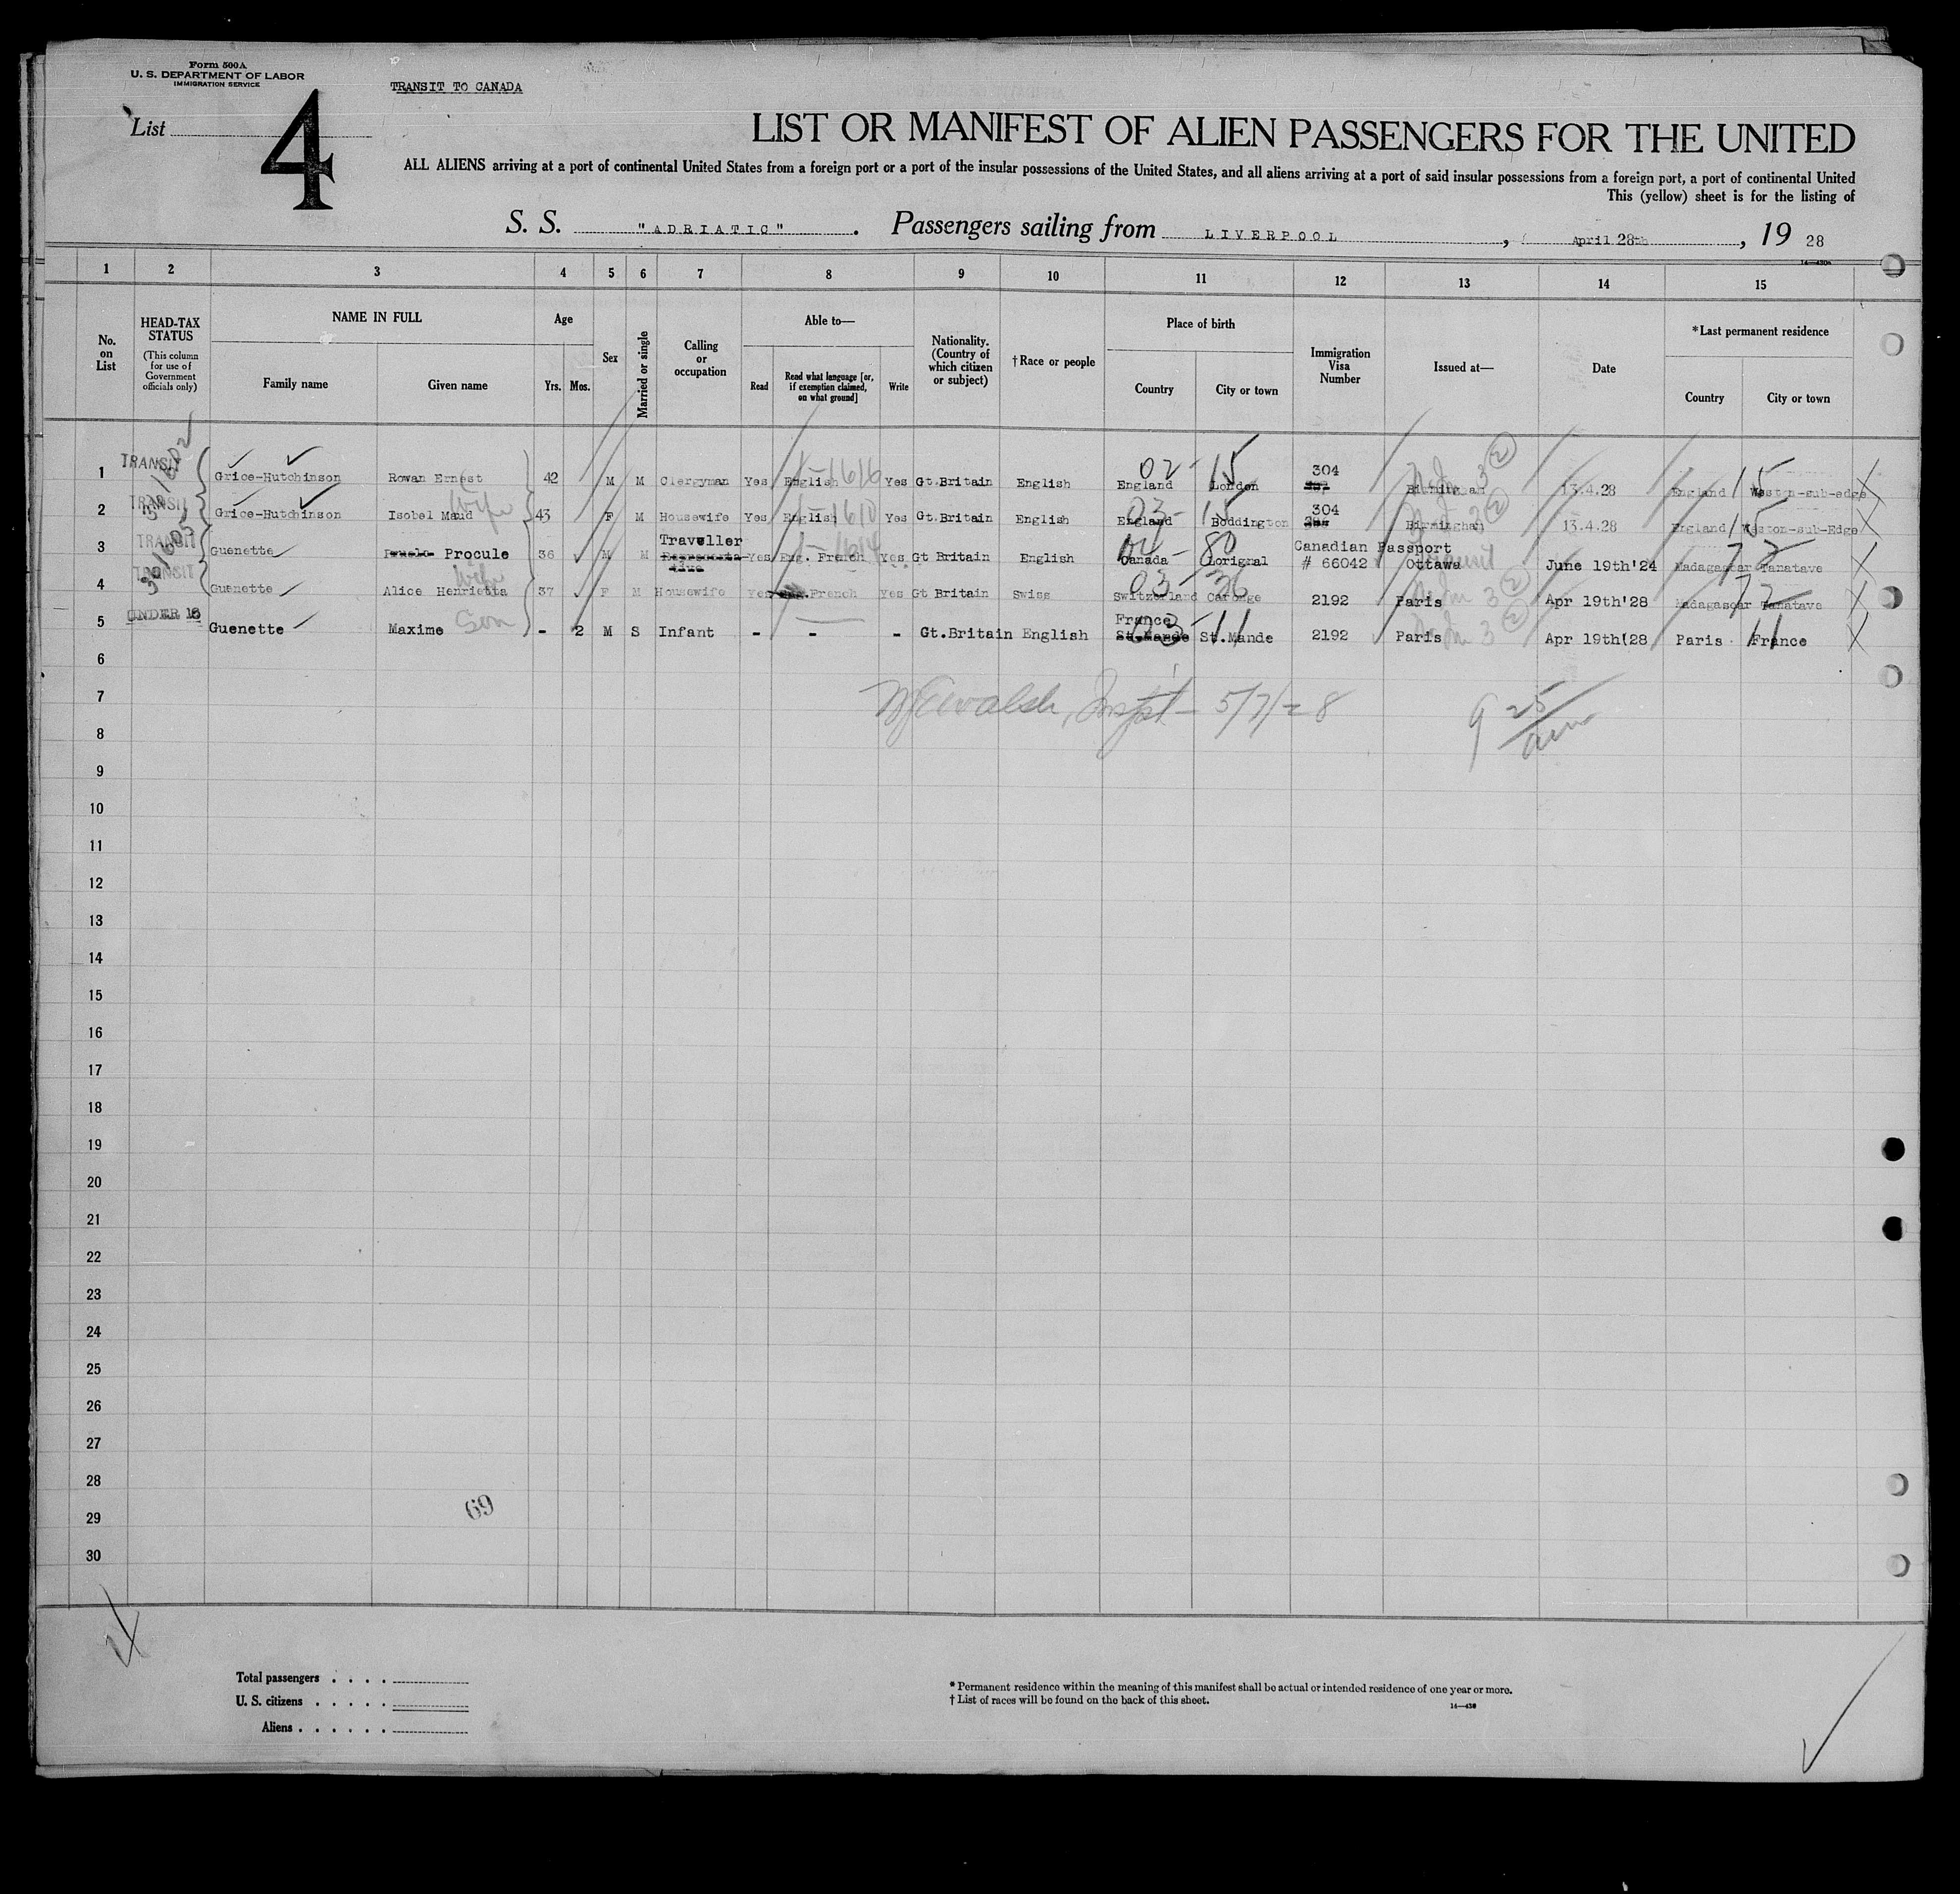 Form 500A
U. S. DEPARTMENT OF LABOR
IMMIGRATION SERVICE
TRANSIT TO CANADA
List 4
LIST OR MANIFEST OF ALIEN PASSENGERS FOR THE UNITED
ALL ALIENS arriving at a port of continental United States from a foreign port or a port of the insular possessions of the United States, and all aliens arriving at a port of said insular possessions from a foreign port, a port of continental United
This (yellow) sheet is for the listing of
S. S. "ADRIATIC" . Passengers sailing from LIVERPOOL , April 28th , 19 28
14—430a
1 2 3 4 5 6 7 8 9 10 11 12 13 14 15
No. on List
HEAD-TAX STATUS
(This column for use of Government officials only)
NAME IN FULL
Family name Given name
Age
Yrs. Mos.
Sex
Married or single
Calling or occupation
Able to—
Read
Read what language [or, if exemption claimed, on what ground]
Write
Nationality. (Country of which citizen or subject)
†Race or people
Place of birth
Country City or town
Immigration Visa Number
Issued at—
Date
*Last permanent residence
Country City or town
1 TRANSIT Grice-Hutchinson Rowan Ernest 42 M M Clergyman Yes English Yes Gt.Britain English England London 304 Birmingham 13.4.28 England Weston-sub-edge
02 - 15 15
2 TRANSIT Grice-Hutchinson Isobel Maud wife 43 F M Housewife Yes English Yes Gt.Britain English England Boddington 304 Birmingham 13.4.28 England Weston-sub-Edge
03 - 15 15
3 TRANSIT Guenette Procule 36 M M Traveller Yes Eng. French Yes Gt Britain English Canada Lorignal Canadian Passport # 66042 Ottawa June 19th'24 Madagascar Tanatave
80 72
4 TRANSIT Guenette Alice Henrietta wife 37 F M Housewife Yes French Yes Gt Britain Swiss Switzerland Carouge 2192 Paris Apr 19th'28 Madagascar Tanatave
03 - 36 72
5 UNDER 16 Guenette Maxime Son - 2 M S Infant - - - Gt.Britain English France St.Mande St.Mande 2192 Paris Apr 19th'28 Paris France
03 - 11 11
6
7
Inspt - 5/7/28
9 25 am
8
9
10
11
12
13
14
15
16
17
18
19
20
21
22
23
24
25
26
27
28
69
29
30
Total passengers . . . .
U. S. citizens . . . . .
Aliens . . . . . .
* Permanent residence within the meaning of this manifest shall be actual or intended residence of one year or more.
† List of races will be found on the back of this sheet.
14—430